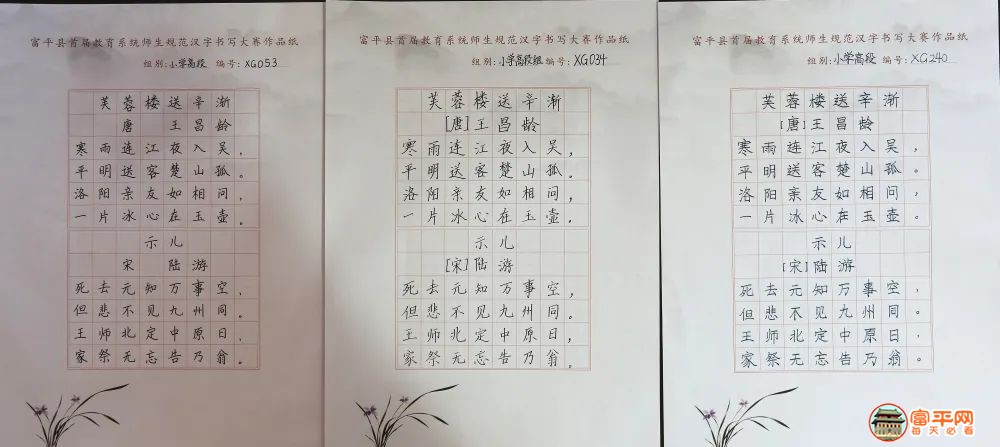 富平县首届教育系统师生规范汉字书写大赛作品纸
组别:小学高段 编号:XG053
芙蓉楼送辛渐
唐 王昌龄
寒雨连江夜入吴，
平明送客楚山孤。
洛阳亲友如相问，
一片冰心在玉壶。
示儿
宋 陆游
死去元知万事空，
但悲不见九州同。
王师北定中原日，
家祭无忘告乃翁。
富平县首届教育系统师生规范汉字书写大赛作品纸
组别:小学高段组 编号:XG034
芙蓉楼送辛渐
[唐]王昌龄
寒雨连江夜入吴，
平明送客楚山孤。
洛阳亲友如相问，
一片冰心在玉壶。
示儿
[宋]陆游
死去元知万事空，
但悲不见九州同。
王师北定中原日，
家祭无忘告乃翁。
富平县首届教育系统师生规范汉字书写大赛作品纸
组别:小学高段 编号:XG240
芙蓉楼送辛渐
[唐]王昌龄
寒雨连江夜入吴，
平明送客楚山孤。
洛阳亲友如相问，
一片冰心在玉壶。
示儿
[宋]陆游
死去元知万事空，
但悲不见九州同。
王师北定中原日，
家祭无忘告乃翁。
富平网
每天必看